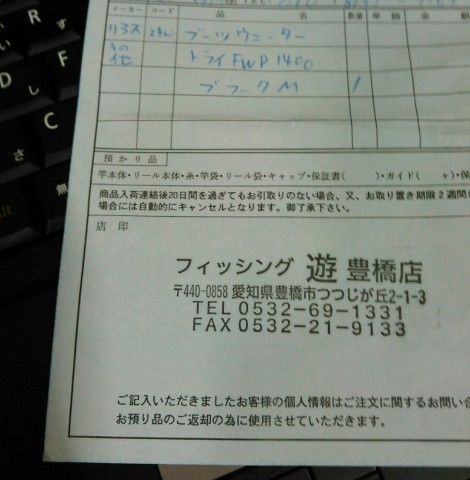 メーカー コード 品 名 数量 単 価 金 額
リアス ブーツウェーダー
その他 トライ FWP 1400
ブラック M 1
預かり品
竿本体・リール本体・糸・竿袋・リール袋・キャップ・保証書( )・ガイド( ヶ)・保
商品入荷連絡後20日間を過ぎてもお引取りのない場合、又、お取り置き期限2週間
場合には自動的にキャンセルとなります。御了承下さい。
店 印
フィッシング 遊 豊橋店
〒440-0858 愛知県豊橋市つつじが丘2-1-3
TEL 0532-69-1331
FAX 0532-21-9133
ご記入いただきましたお客様の個人情報はご注文に関するお問い合
お預り品のご返却の為に使用させていただきます。
R
す
D
し
F
C
さ
無
Alt